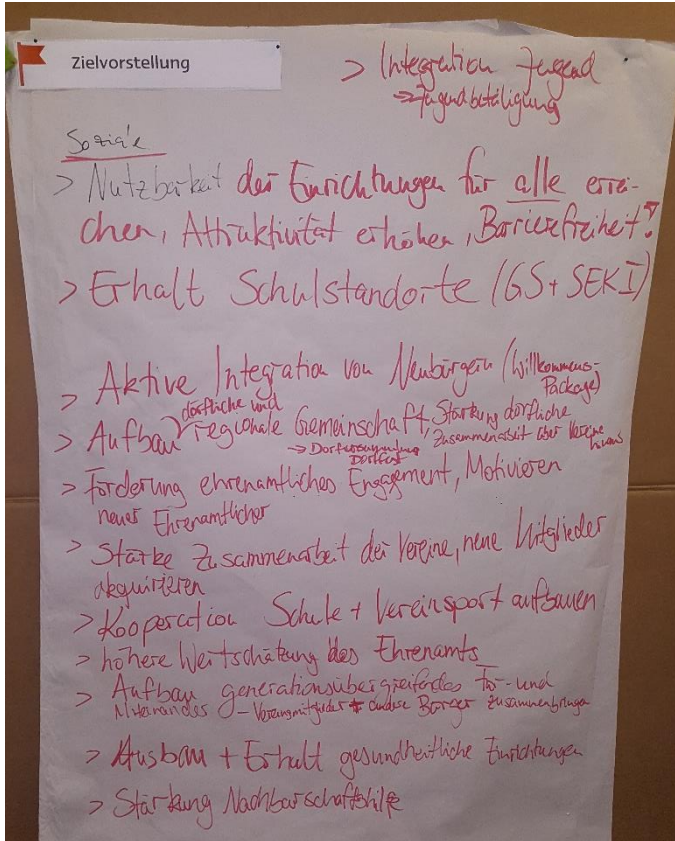 Zielvorstellung
> Integration Jugend
=> Jugendbeteiligung
Soziale
> Nutzbarkeit der Einrichtungen für alle errei-
chen, Attraktivität erhöhen, Barrierefreiheit!
> Erhalt Schulstandorte (GS + SEK I)
> Aktive Integration von Neubürgern (Willkommens-
Package)
dörfliche und
> Aufbau regionale Gemeinschaft, Stärkung dörfliche
Zusammenarbeit über Vereine hinaus
-> Dorfversammlung
Dorffest
> Förderung ehrenamtliches Engagement, Motivieren
neuer Ehrenamtlicher
> Stärke Zusammenarbeit der Vereine, neue Mitglieder
akquirieren
> Kooperation Schule + Vereinsport aufbauen
> höhere Wertschätzung des Ehrenamts
> Aufbau generationsübergreifendes Für- und
Miteinander - Vereinsmitglieder + andere Bürger zusammenbringen
> Ausbau + Erhalt gesundheitliche Einrichtungen
> Stärkung Nachbarschaftshilfe